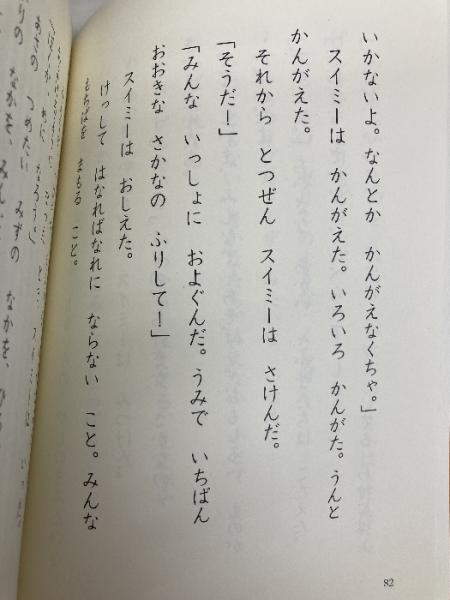 いかないよ。なんとか　かんがえなくちゃ。」
スイミーは　かんがえた。いろいろ　かんがた。うんと
かんがえた。
それから　とつぜん　スイミーは　さけんだ。
「そうだ！」
「みんな　いっしょに　およぐんだ。うみで　いちばん
おおきな　さかなの　ふりして！」
スイミーは　おしえた。
けっして　はなればなれに　ならない　こと。みんな
もちばを　まもる　こと。
みずの　なかを、
82